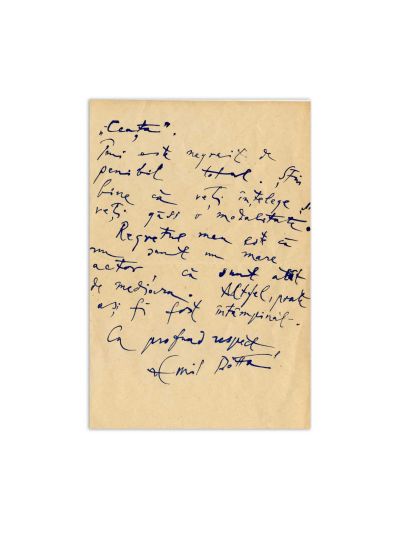 „Ceața".
Îmi este negrăit de
penibil totul. Știu
bine că veți înțelege și
veți găsi o modalitate.
Regretul meu este că
nu sunt un mare
actor, că sunt atât
de mediocru. Altfel, poate
aș fi fost întâmpinat.
Cu profund respect
Emil Botta